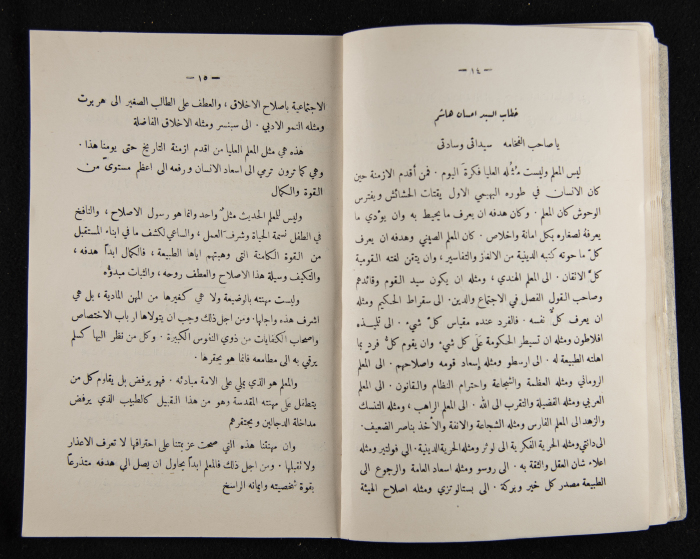 — ١٤ —
خطاب السيد احسان هاشم
يا صاحب الفخامه سيداتي وسادتي
ليس المعلم وليست مُثُله العليا فكرةَ اليوم . فمن أقدم الازمنة حين
كان الانسان في طوره الهمجي الاول يقتات الحشائش ويفترس
الوحوش كان المعلم . وكان هدفه ان يعرف ما يحيط به وان يؤدي ما
يعرفهُ لصغاره بكل امانة واخلاص . كان المعلم الصيني وهدفه ان يعرف
كلّ ما حوته كتبه الدينية من الالغاز والتفاسير ، وان يتقن لغته القومية
كلَّ الاتقان . الى المعلم الهندي ، ومثله ان يكون سيد القوم وقائدهم
وصاحب القول الفصل في الاجتماع والدين . الى سقراط الحكيم ومثله
ان يعرف كلٌّ نفسه . فالفرد عنده مقياس كلّ شيء . الى تلميذه
افلاطون ومثله ان تسيطر الحكومة على كل شيء وان يقوم كلُّ فردٍ بما
اهلته الطبيعة له . الى ارسطو ومثله إسعاد قومه واصلاحهم . الى المعلم
الروماني ومثله العظمة والشجاعة واحترام النظام والقانون . الى المعلم
العربي ومثله الفضيلة والتقرب الى الله . الى المعلم الراهب ، ومثله التنسك
والزهد الى المعلم الفارس ومثله الشجاعة والانفة والأخذ بناصر الضعيف .
الى دانتي ومثله الحرية الفكرية الى لوثر ومثله الحرية الدينية . الى فولتير ومثله
اعلاء شان العقل والثقة به . الى روسو ومثله اسعاد العامة والرجوع الى
الطبيعة مصدر كل خير وبركة . الى بستالوتزي ومثله اصلاح الهيئة
— ١٥ —
الاجتماعية باصلاح الاخلاق ، والعطف على الطالب الصغير الى هربرت
ومثله النمو الادبي . الى سبنسر ومثله الاخلاق الفاضلة
هذه هي مثل المعلم العليا من اقدم ازمنة التاريخ حتى يومنا هذا .
وهي كما ترون ترمي الى اسعاد الانسان ورفعه الى اعظم مستوىً من
القوة والكمال
وليس للمعلم الحديث مثلٌ واحد وانما هو رسول الاصلاح ، والنافخ
في الطفل نسمة الحياة وشرف العمل ، والساعي لكشف ما في ابناء المستقبل
من القوة الكامنة التي وهبتهم اياها الطبيعة ، فالكمال ابداً هدفه ،
والتكيف وسيلة هذا الاصلاح والعطف روحه ، والثبات مبدؤه
وليست مهنته بالوضيعة ولا هي كغيرها من المهن المادية ، بل هي
اشرف هذه واجلها . ومن اجل ذلك وجب ان يتولاها ارباب الاختصاص
واصحاب الكفايات من ذوي النفوس الكبيرة . وكل من نظر اليها كسلم
يرقي به الى مطامعه فانما هو يحقرها .
والمعلم هو الذي يملي على الامة مبادئه . فهو يرفض بل يقاوم كل من
يتطفل على مهنته المقدسة وهو من هذا القبيل كالطبيب الذي يرفض
مداخلة الدجالين ويحتقرهم
وان مهنتنا هذه التي صحت عزيمتنا على احترافها لا تعرف الاعذار
ولا تقبلها . ومن اجل ذلك فالمعلم ابداً يحاول ان يصل الى هدفه متذرعاً
بقوة شخصيته وايمانه الراسخ